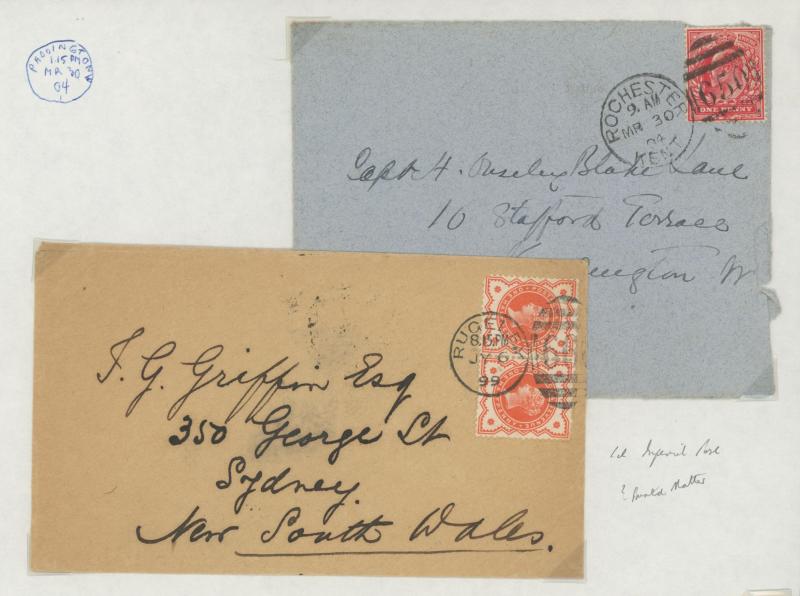 PADDINGTON W
1.15 PM
MR 30
04
ROCHESTER
9. AM
MR 30
04
KENT
650
ONE PENNY
Capt. H. Blake Lane
10 Stafford Terrace
W
RUGELEY
8.15 PM
JY 6
99
J. G. Griffin Esq
350 George St
Sydney.
New South Wales.
1d Imperial Post
? Printed Matter